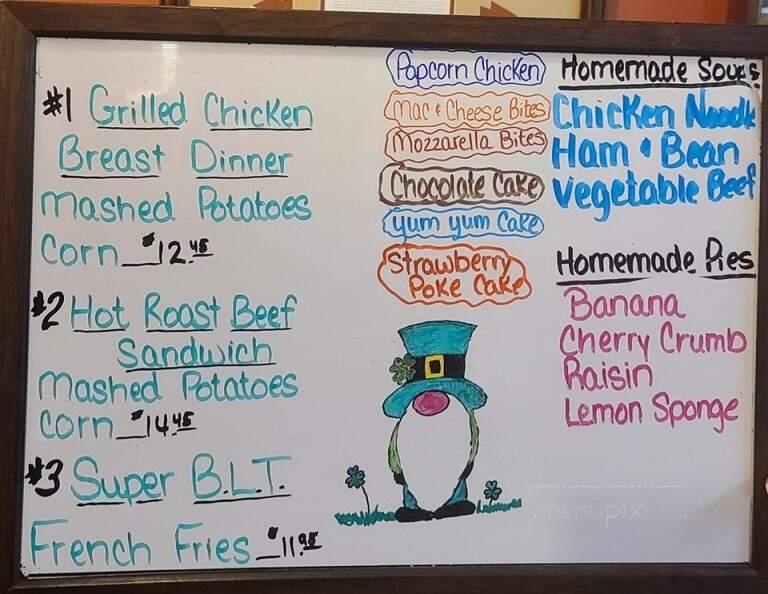 #1 Grilled Chicken
Breast Dinner
Mashed Potatoes
Corn $12.45
#2 Hot Roast Beef
Sandwich
Mashed Potatoes
Corn $14.45
#3 Super B.L.T.
French Fries $11.95
Popcorn Chicken
Mac & Cheese Bites
Mozzarella Bites
Chocolate Cake
Yum Yum Cake
Strawberry
Poke Cake
Homemade Soups
Chicken Noodle
Ham & Bean
Vegetable Beef
Homemade Pies
Banana
Cherry Crumb
Raisin
Lemon Sponge
menupix